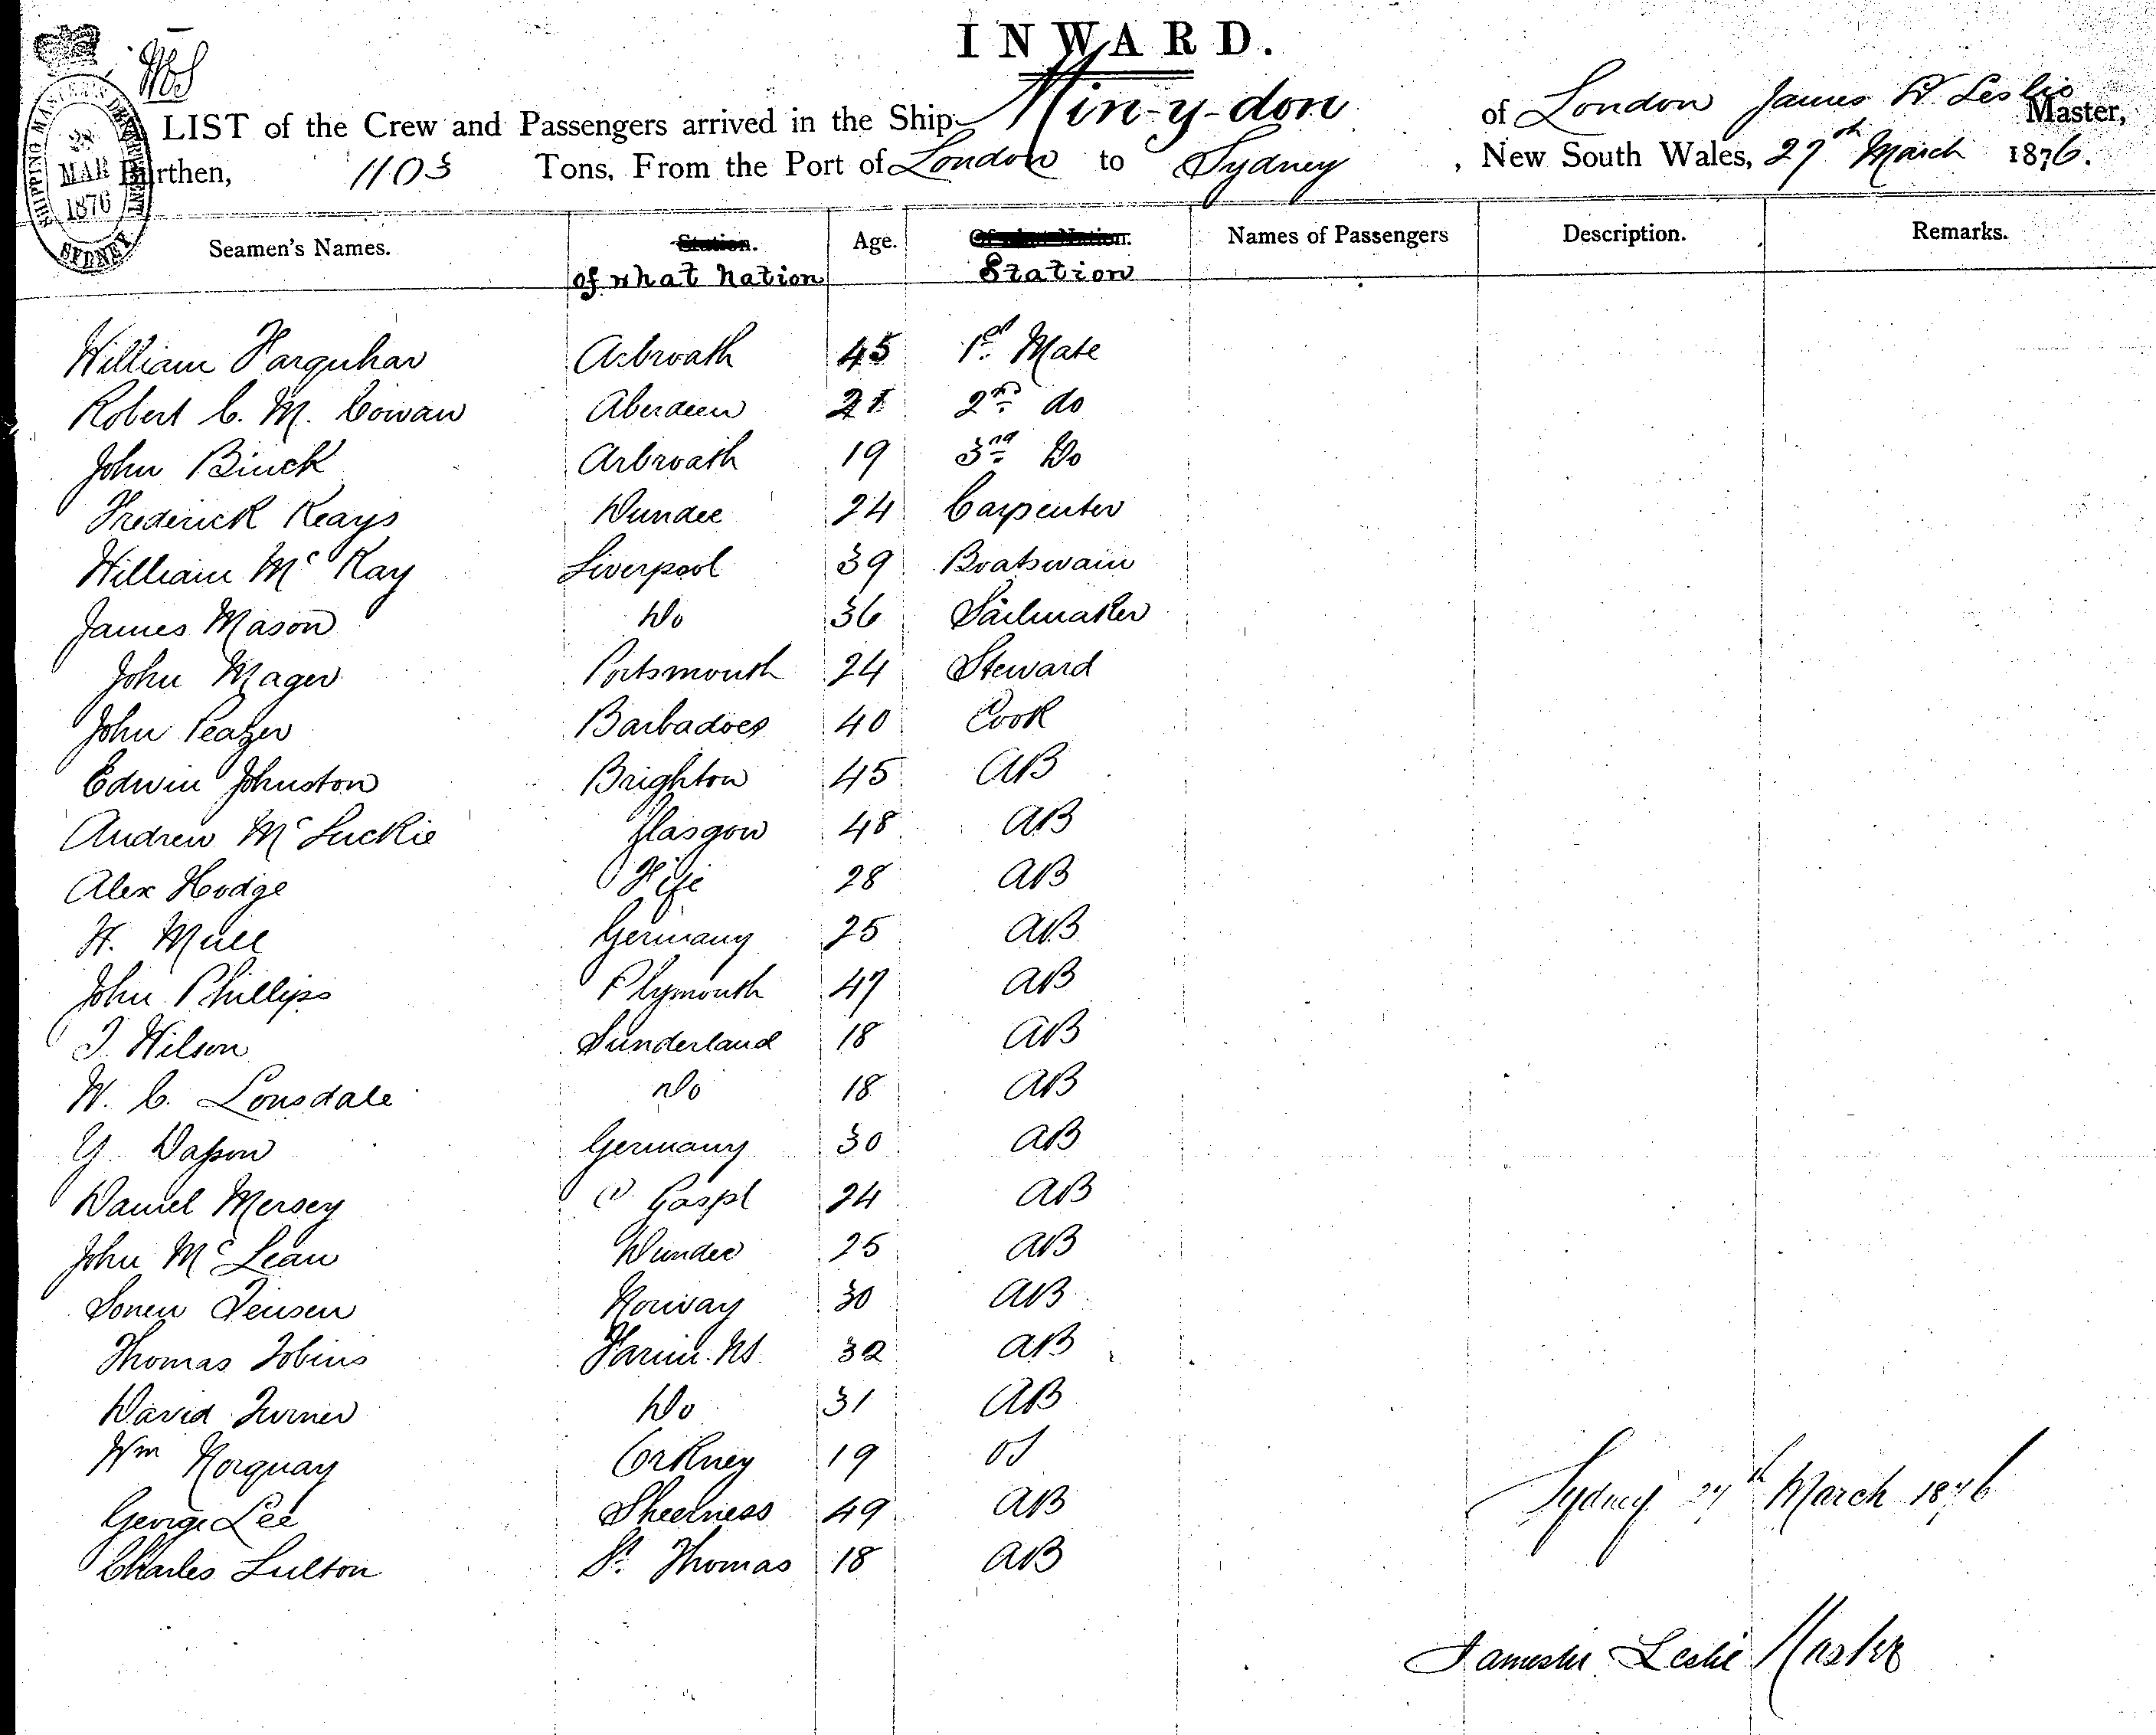 INWARD.
SHIPPING MASTER'S DEPARTMENT
28
MAR
1876
SYDNEY
LIST of the Crew and Passengers arrived in the Ship Min-y-don of London James W. Leslie Master,
Burthen, 1103 Tons, From the Port of London to Sydney, New South Wales, 27th March 1876.
Seamen's Names. Station. Age. Of what Nation. Names of Passengers Description. Remarks.
of what Nation Station
William Farquhar Arbroath 45 1st Mate
Robert C. M. Cowan Aberdeen 21 2nd do
John Binck Arbroath 19 3rd Do
Frederick Keays Dundee 24 Carpenter
William McKay Liverpool 39 Boatswain
James Mason Do 36 Sailmaker
John Mager Portsmouth 24 Steward
John Peazer Barbadoes 40 Cook
Edwin Johnston Brighton 45 AB
Andrew McLuckie Glasgow 48 AB
Alex Hodge Fife 28 AB
H. Mull Germany 25 AB
John Phillips Plymouth 47 AB
J. Wilson Sunderland 18 AB
W. C. Lonsdale Do 18 AB
Y. Dasson Germany 30 AB
Daniel Mersey 24 AB
John McLean Dundee 25 AB
Sonen Jensen Norway 30 AB
Thomas Tobins 32 AB
David Turner Do 31 AB
Wm Norquay Orkney 19 OS
George Lee Sheerness 49 AB
Charles Lulton St. Thomas 18 AB
Sydney 27th March 1876
Leslie Master